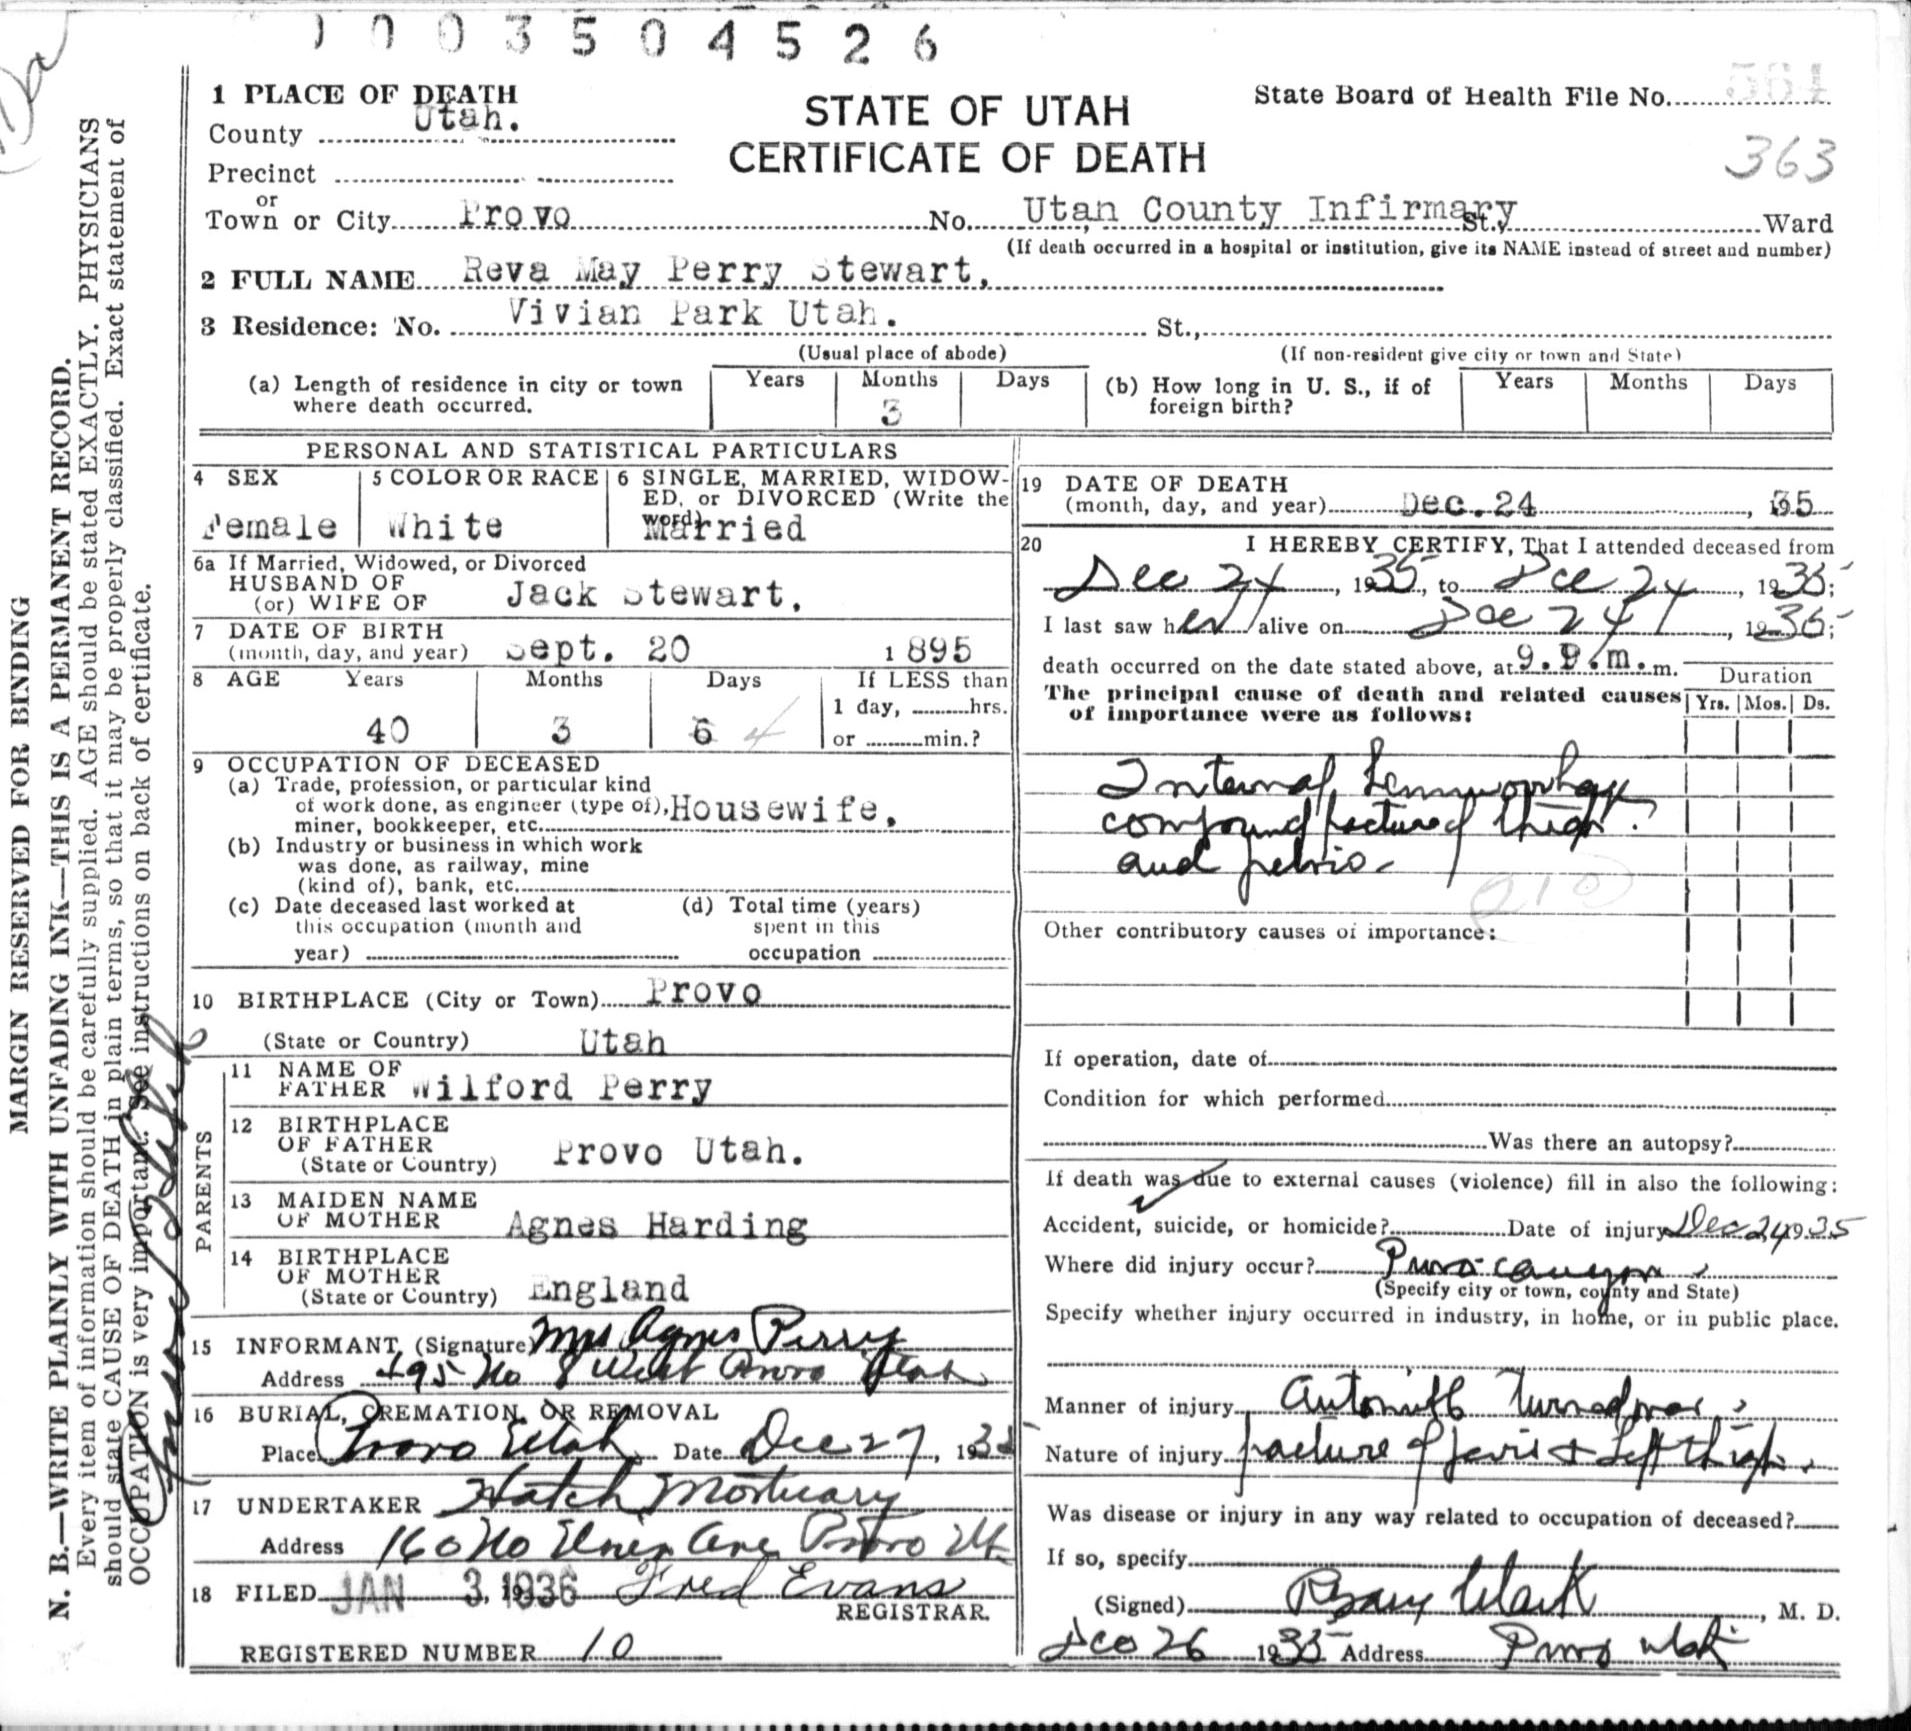 1003504526
1 PLACE OF DEATH
County Utah.
Precinct
or
Town or City Provo No. Utah County Infirmary St., Ward
(If death occurred in a hospital or institution, give its NAME instead of street and number)
STATE OF UTAH
CERTIFICATE OF DEATH
State Board of Health File No. 564
363
2 FULL NAME Reva May Perry Stewart,
3 Residence: No. Vivian Park Utah. St.,
(Usual place of abode) (If non-resident give city or town and State)
(a) Length of residence in city or town where death occurred. Years Months 3 Days
(b) How long in U. S., if of foreign birth? Years Months Days
PERSONAL AND STATISTICAL PARTICULARS
4 SEX Female
5 COLOR OR RACE White
6 SINGLE, MARRIED, WIDOWED, or DIVORCED (Write the word) Married
6a If Married, Widowed, or Divorced
HUSBAND OF
(or) WIFE OF Jack Stewart.
7 DATE OF BIRTH
(month, day, and year) Sept. 20 1895
8 AGE Years 40 Months 3 Days 6 4 If LESS than
1 day, hrs.
or min.?
9 OCCUPATION OF DECEASED
(a) Trade, profession, or particular kind
of work done, as engineer (type of), Housewife.
miner, bookkeeper, etc.
(b) Industry or business in which work
was done, as railway, mine
(kind of), bank, etc.
(c) Date deceased last worked at
this occupation (month and
year)
(d) Total time (years)
spent in this
occupation
10 BIRTHPLACE (City or Town) Provo
(State or Country) Utah
PARENTS
11 NAME OF
FATHER Wilford Perry
12 BIRTHPLACE
OF FATHER
(State or Country) Provo Utah.
13 MAIDEN NAME
OF MOTHER Agnes Harding
14 BIRTHPLACE
OF MOTHER
(State or Country) England
15 INFORMANT (Signature) Mrs Agnes Perry
Address 495 No 8 West Provo Utah
16 BURIAL, CREMATION, OR REMOVAL
Place Provo Utah Date Dec 27, 1935
17 UNDERTAKER Hatch Mortuary
Address 160 No Univ. Ave Provo Ut.
18 FILED JAN 3, 1936 Fred Evans
REGISTRAR.
REGISTERED NUMBER 10
19 DATE OF DEATH
(month, day, and year) Dec. 24, 1935
20 I HEREBY CERTIFY, That I attended deceased from
Dec 24, 1935, to Dec 24, 1935;
I last saw her alive on Dec 24, 1935;
death occurred on the date stated above, at 9.P.m. m.
The principal cause of death and related causes
of importance were as follows:
Duration
Yrs. Mos. Ds.
Internal hemmorhage
compound fracture of thigh
and pelvis-
210
Other contributory causes of importance:
If operation, date of
Condition for which performed
Was there an autopsy?
If death was due to external causes (violence) fill in also the following:
Accident, suicide, or homicide? Date of injury Dec 24, 1935
Where did injury occur? Provo canyon
(Specify city or town, county and State)
Specify whether injury occurred in industry, in home, or in public place.
Manner of injury Automobile turned over
Nature of injury fracture of pelvis + Left thigh.
Was disease or injury in any way related to occupation of deceased?
If so, specify
(Signed) Clark, M. D.
Dec 26 1935 Address Provo Utah
MARGIN RESERVED FOR BINDING
N. B.—WRITE PLAINLY WITH UNFADING INK—THIS IS A PERMANENT RECORD.
Every item of information should be carefully supplied. AGE should be stated EXACTLY. PHYSICIANS
should state CAUSE OF DEATH in plain terms, so that it may be properly classified. Exact statement of
OCCUPATION is very important. See instructions on back of certificate.